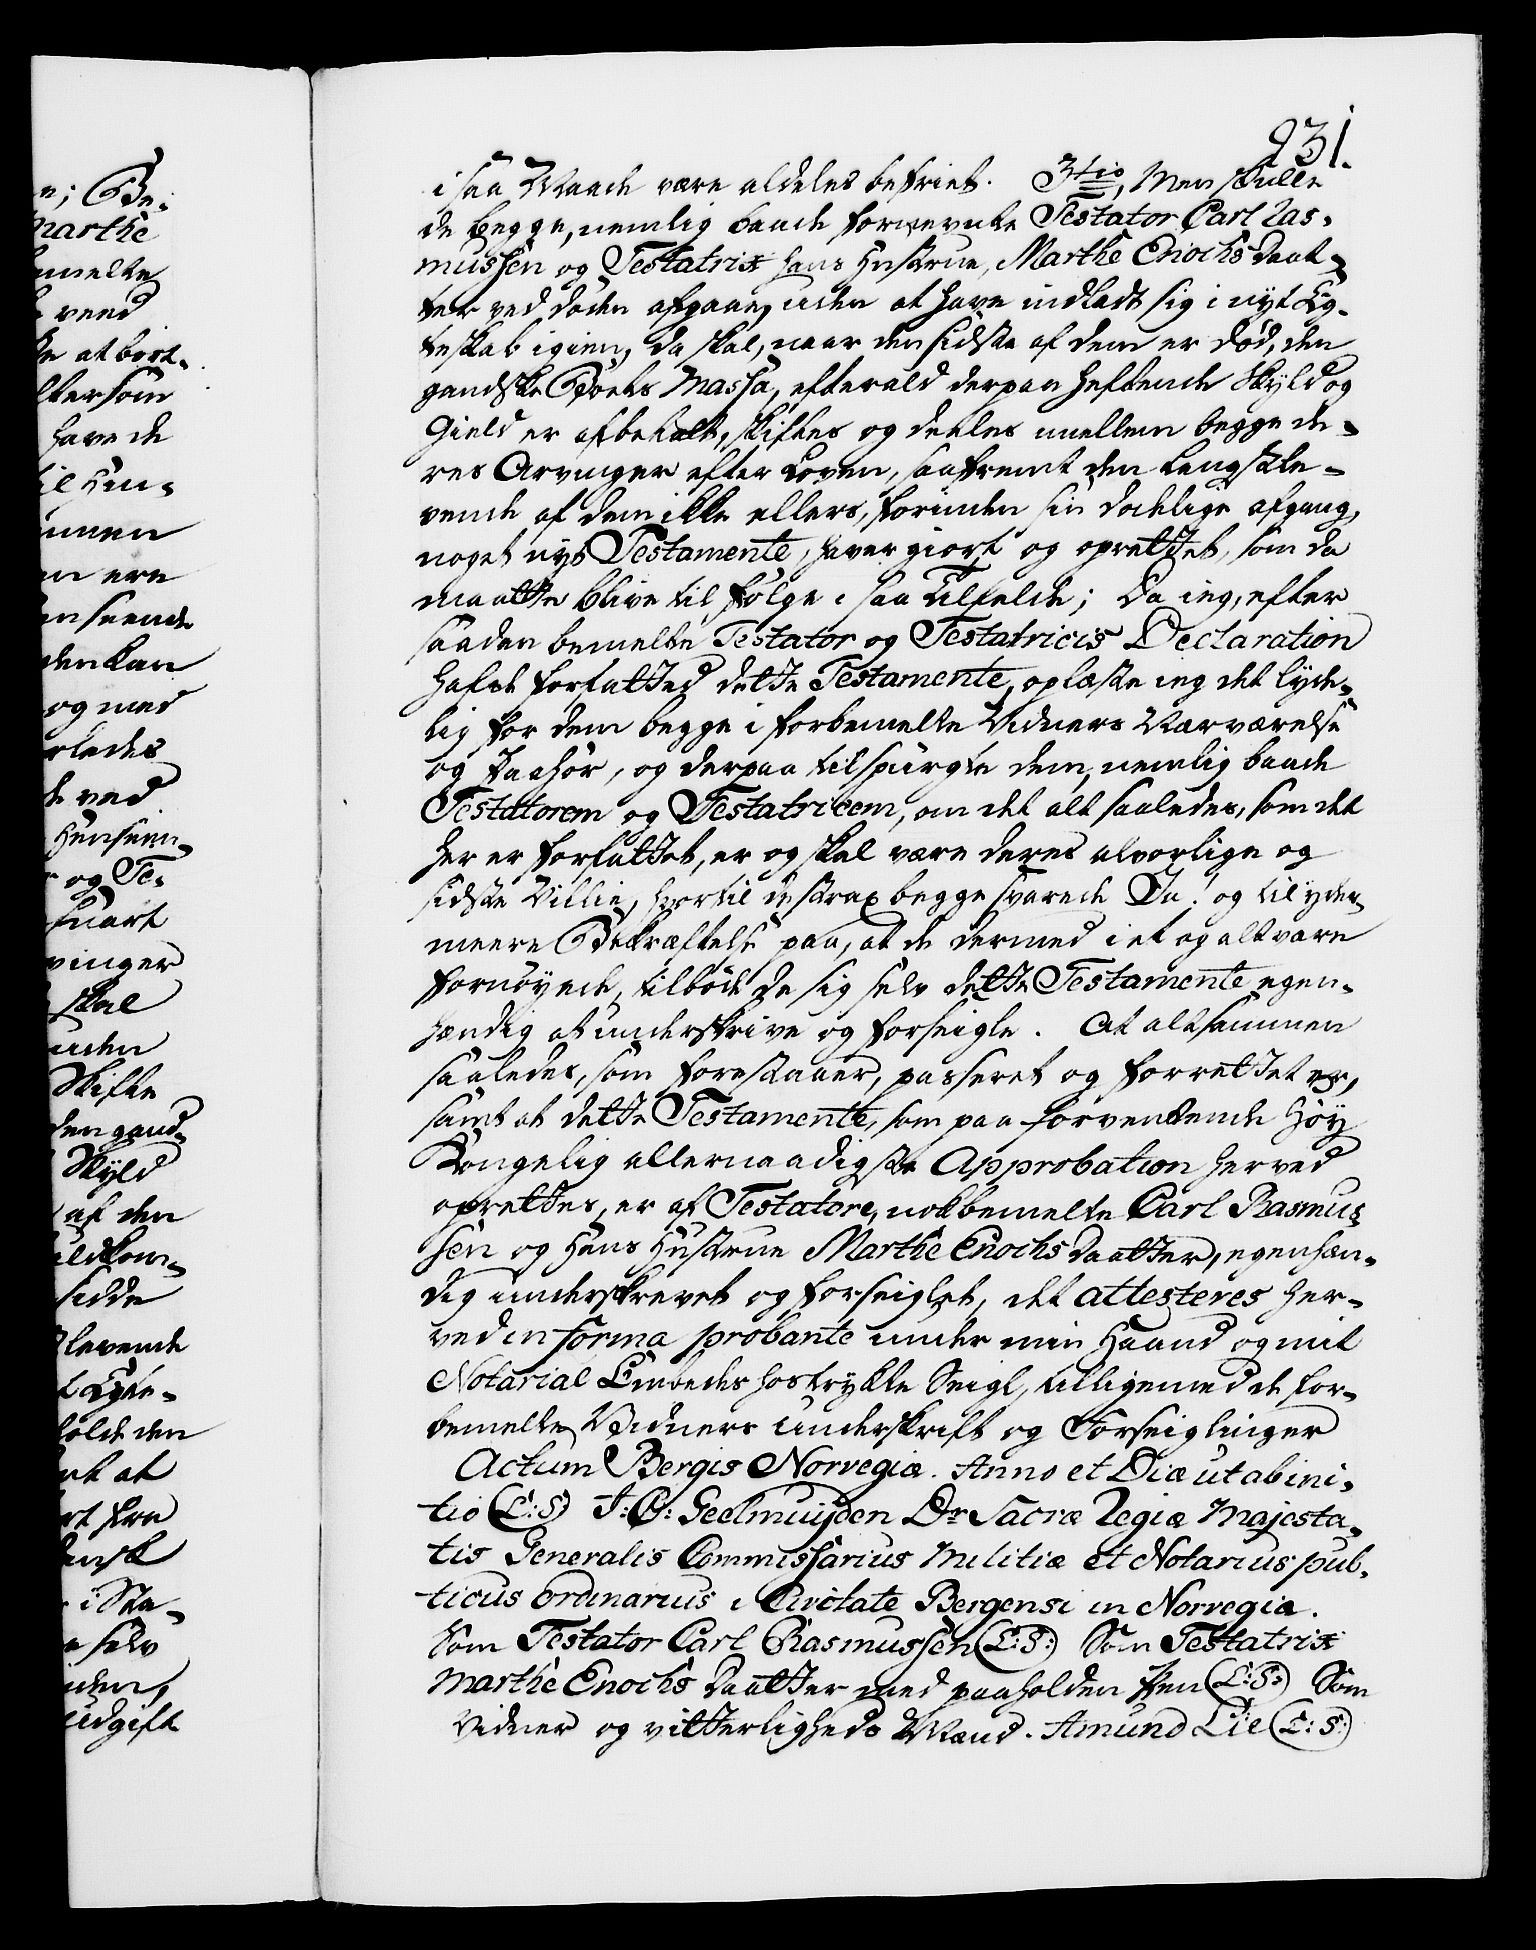 e; Be-
Marthe
bemelte
veed
at bort-
eftersom
have de
til Hin-
ammen
en ere
anseende
den kan
og med
erledes
ved
Henseen-
og Te-
snart
vinger
skal
uden
Skifte
den gand-
Skyld
af den
uldkom-
sidde
levende
t Egte-
holde den
nt at
et fra
Dansk
i Sta-
selv
uden,
udgift
231.
i saa Maade være aldeles befriet. 3tio, Men skulle
de begge, nemlig baade fornevnte Testator Carl Ras-
mussen og Testatrix hans Hustrue, Marthe Enochs Daat-
ter ved døden afgaae, uden at have indladt sig i nyt Eg-
teskab igien, da skal, naar den sidste af dem er død, den
gandske Boets Massa, efter ald derpaa heftende Skyld og
Gield er afbetalt, skiftes og deeles mellem begge de-
res Arvinger efter Loven, saafremt den Længstle-
vende af dem ikke ellers, forinden sin dødelige afgang,
noget nyt Testamente, haver giort og oprettet, som da
maatte blive til følge i saa tilfelde; Da ieg, efter
saadan bemelte Testator og Testatricis Declaration
hafde forfatted dette Testamente, oplæste ieg det lyde-
lig for dem begge i forbemelte Vidners Nærværelse
og Paahør, og derpaa tilspurgte dem, nemlig baade
Testatorem og Testatricem, om det alt saaledes, som det
her er forfattet, er og skal være deres alvorlige og
sidste Villie, hvortil de strax begge svarede Ja! og til yder-
meere Bekræftelse paa, at de dermed i et og alt vare
fornøyede, tilbød de sig selv dette Testamente egen-
hændig at underskrive og forseigle. At alt sammen
saaledes, som forestaaer, passeret og forrettet er,
samt at dette Testamente, som paa forventende Høy
Kongelig allernaadigste Approbation herved
oprettes, er af Testatore, nokbemelte Carl Rasmus-
sen og Hans Hustrue Marthe Enochs Daatter, egenhæn-
dig underskrevet og forseiglet, det attesteres her-
ved in forma probante under min Haand og mit
Notarial Embedes hostrykte Seigl, tilligemed de for-
bemelte Vidners underskrift og Forseiglinger
Actum Bergis Norvegiæ. Anno et Die ut ab ini-
tio (L:S:) J: C: Geelmuijden Dr Sacræ Regiæ Majesta-
tis Generalis Commissarius Militiæ et Notarius pub-
licus ordinarius i Civitate Bergensi in Norvegia.
Som Testator Carl Rasmussen (L:S:) Som Testatrix
Marthe Enochs Daatter med paaholden Pen (L:S:) Som
Vidner og vitterligheds Mænd. Amund Lie (L:S:)